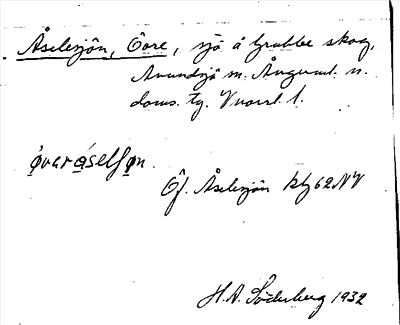 Åselesjön, Övre, sjö å Grubbe skog,
Anundsjö sn. Ångerml. n.
doms. tg. Vnorrl. l.
ǫ́varǻselʃǫn.
Öf. Åselesjön kbl 62 NV
H.A. Söderberg 1932